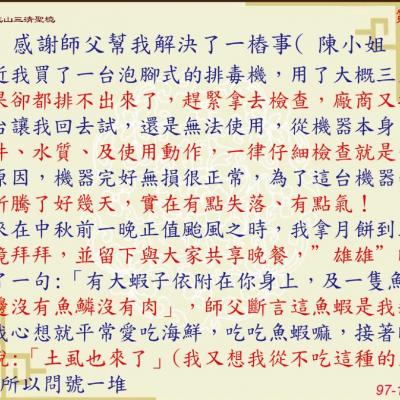 山三清聖境
感謝師父幫我解決了一樁事( 陳小姐
近我買了一台泡腳式的排毒機，用了大概三
果卻都排不出來了，趕緊拿去檢查，廠商又
台讓我回去試，還是無法使用，從機器本身
件、水質、及使用動作，一律仔細檢查就是
原因，機器完好無損很正常，為了這台機器
折騰了好幾天，實在有點失落、有點氣！
來在中秋前一晚正值颱風之時，我拿月餅到
境拜拜，並留下與大家共享晚餐，”雄雄”
了一句:「有大蝦子依附在你身上，及一隻魚
邊沒有魚鱗沒有肉」，師父斷言這魚蝦是我
我心想就平常愛吃海鮮，吃吃魚蝦嘛，接著
說:「土虱也來了」(我又想我從不吃這種的
所以問號一堆
97-